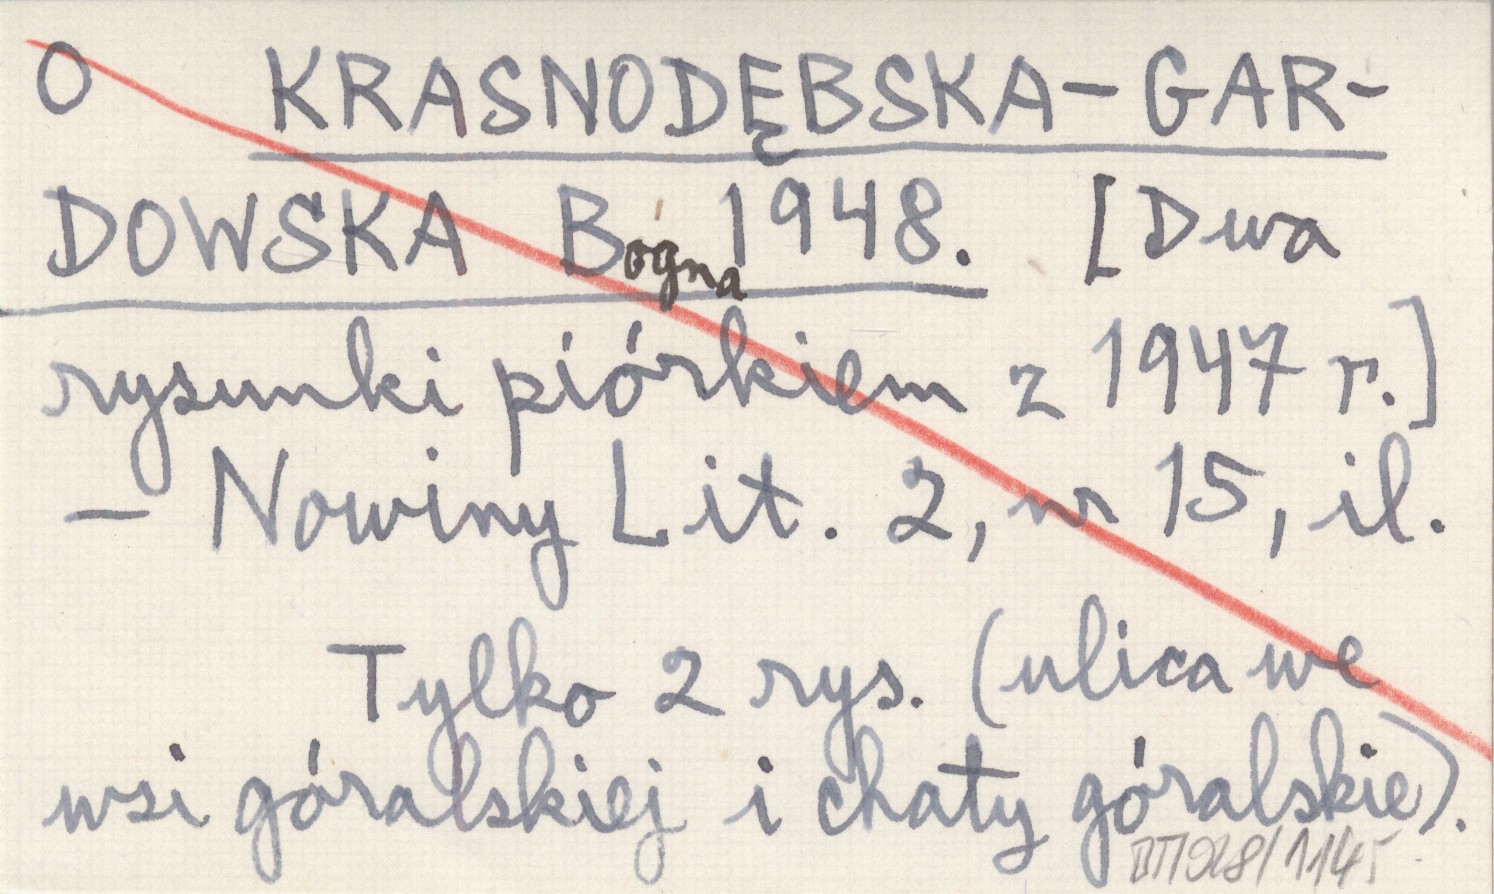 O KRASNODĘBSKA-GAR-
DOWSKA Bogna 1948. [Dwa
rysunki piórkiem z 1947 r.]
– Nowiny Lit. 2, nr 15, il.
Tylko 2 rys. (ulica we
wsi góralskiej i chaty góralskie).